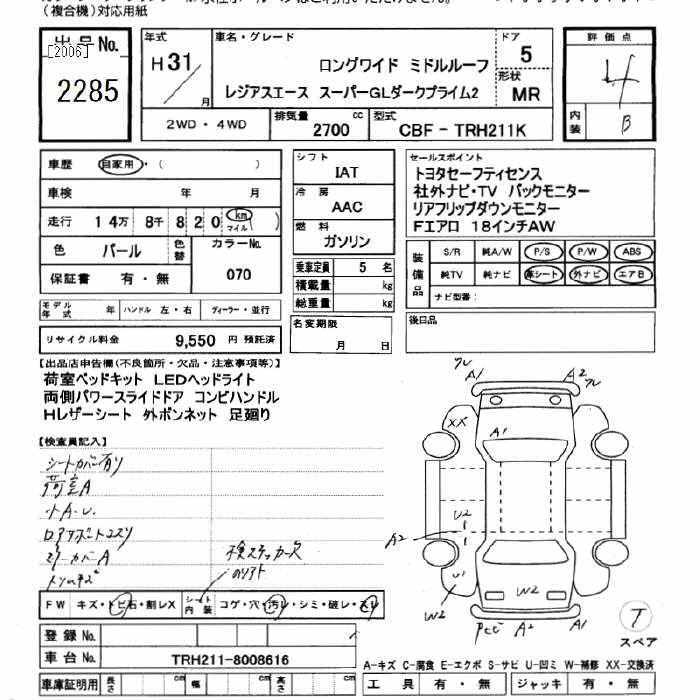 （複合機）対応用紙
出品No.
[2006]
2285
年式
H31
月
車名・グレード
ロングワイド ミドルルーフ
レジアスエース スーパーGLダークプライム2
ドア
5
形状
MR
2WD・4WD
排気量
2700 cc
型式
CBF - TRH211K
評価点
4
内装
B
車歴 自家用・（ ）
車検 年 月
走行 14万 8千 820 km マイル ( )
色 パール 色替 カラーNo. 070
保証書 有・無
モデル年式 年 ハンドル 左・右 ディーラー・並行
リサイクル料金 9,550 円 預託済
シフト
IAT
冷房
AAC
燃料
ガソリン
乗車定員 5 名
積載量 kg
総重量 kg
名変期限
月 日
セールスポイント
トヨタセーフティセンス
社外ナビ・TV バックモニター
リアフリップダウンモニター
Fエアロ 18インチAW
装備品
S/R 純A/W P/S P/W ABS
純TV 純ナビ 革シート 外ナビ エアB
ナビ型番：
後日品
【出品店申告欄(不良箇所・欠品・注意事項等)】
荷室ベッドキット LEDヘッドライト
両側パワースライドドア コンビハンドル
Hレザーシート 外ボンネット 足廻り
【検査員記入】
シートカバー有り
荷室A
小A.U.
ミラーカバーA
検ステッカー欠
FW キズ・トビ石・割レX シート内装 コゲ・穴・汚レ・シミ・破レ・スレ
登録No.
車台No. TRH211-8008616
車庫証明用 長さ cm 幅 cm 高さ cm
A1
A2
XX
A1
U2
A2
U1
W2
W2
A2
A1
T
スペア
A-キズ C-腐食 E-エクボ S-サビ U-凹ミ W-補修 XX-交換済
工具 有・無 ジャッキ 有・無